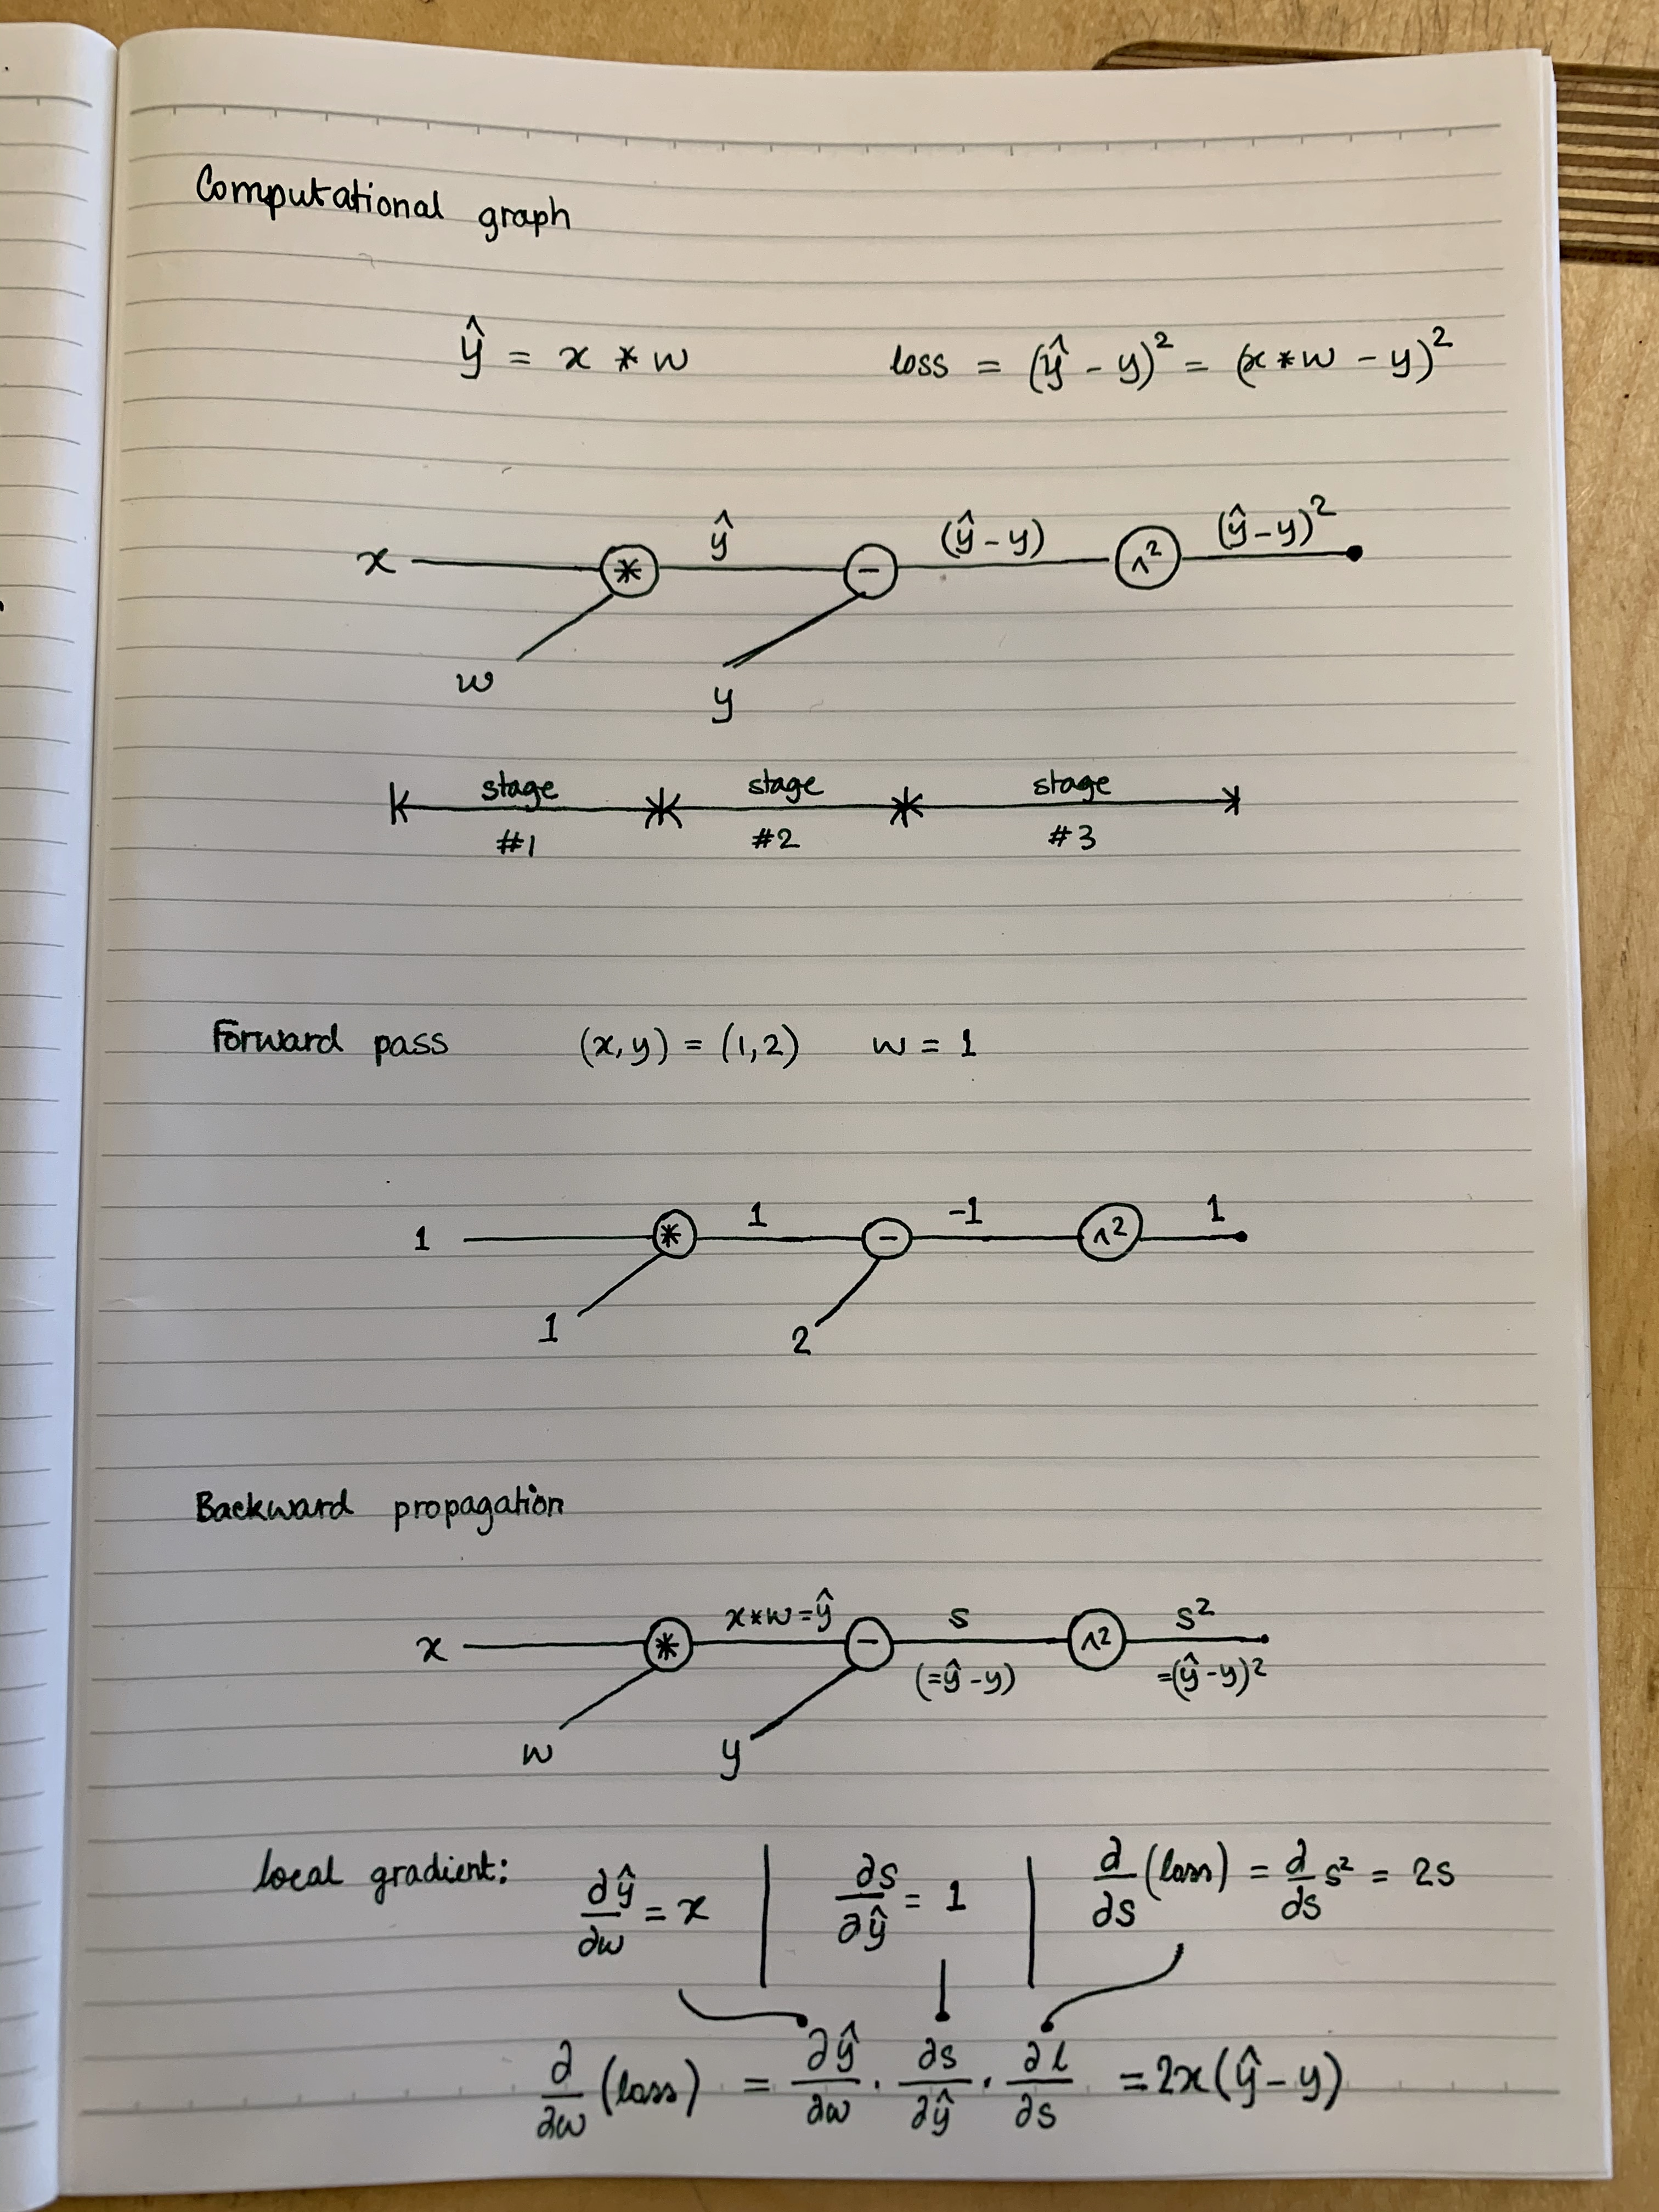 Computational graph
ŷ = x * w    loss = (ŷ - y)² = (x * w - y)²
x * ŷ - (ŷ - y) ^2 (ŷ - y)²
w y
stage stage stage
#1 #2 #3
Forward pass (x, y) = (1, 2) w = 1
1 * 1 - -1 ^2 1
1 2
Backward propagation
x * x*w=ŷ - s ^2 s²
(=ŷ-y) =(ŷ-y)²
w y
local gradient: ∂ŷ/∂w = x | ∂s/∂ŷ = 1 | ∂/∂s (loss) = ∂/∂s s² = 2s
∂/∂w (loss) = ∂ŷ/∂w . ∂s/∂ŷ . ∂l/∂s = 2x(ŷ - y)